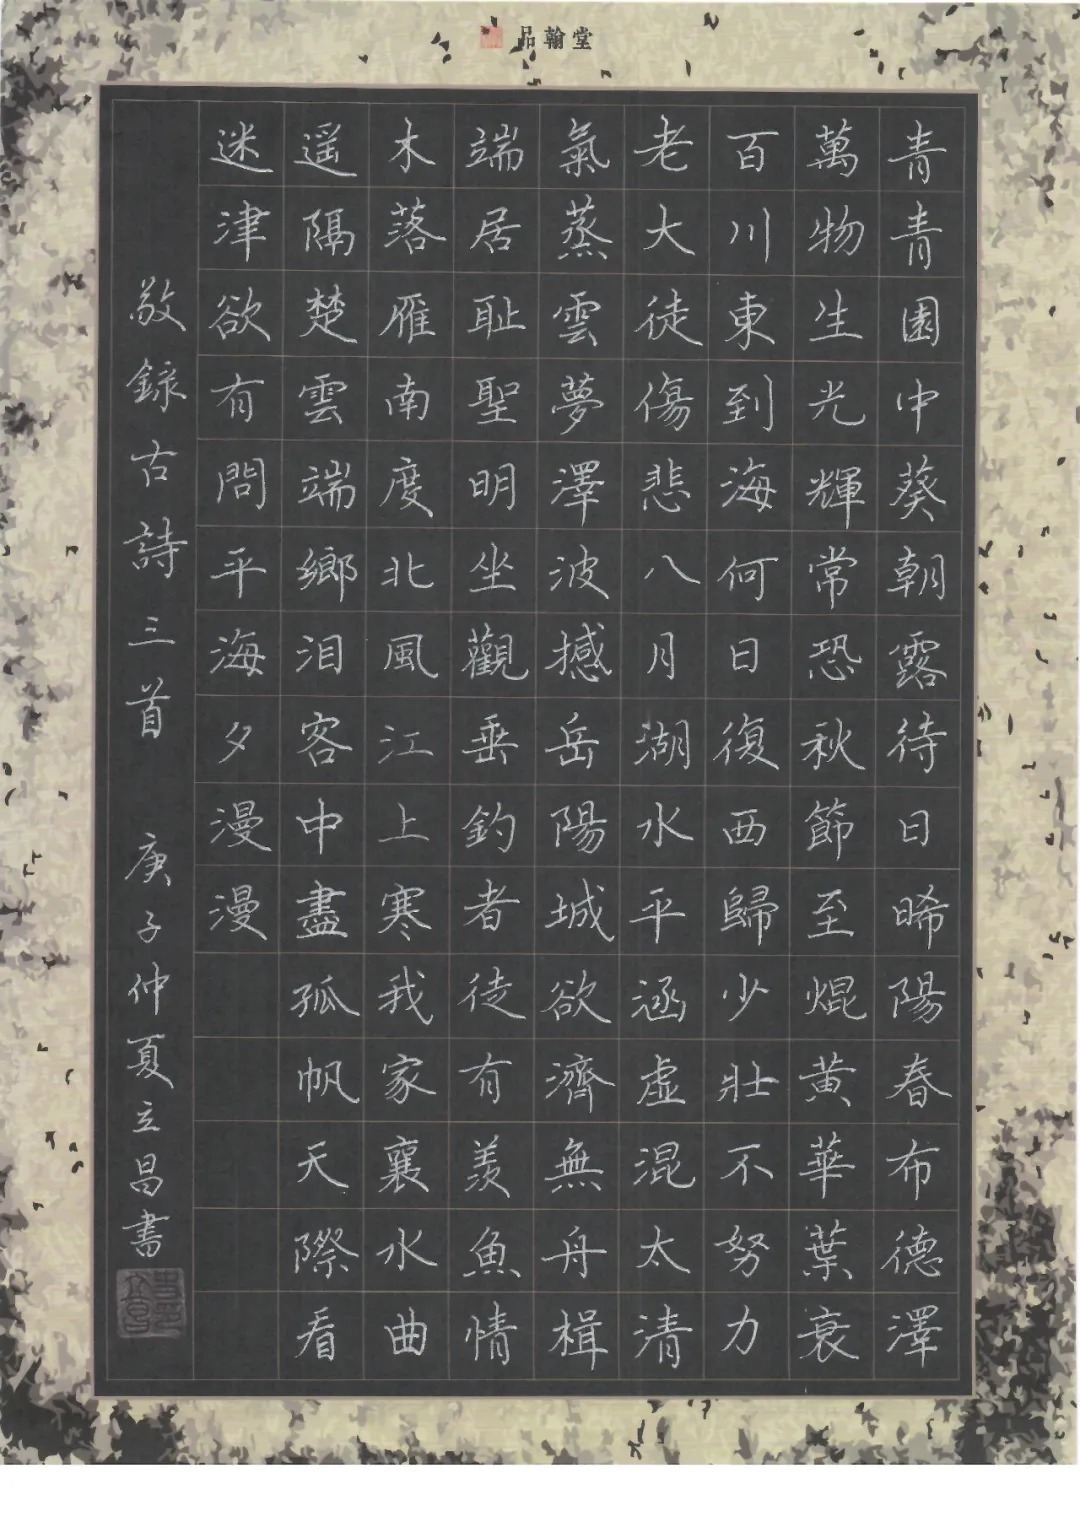 品翰堂
青青園中葵朝露待日晞陽春布德澤
萬物生光輝常恐秋節至焜黃華葉衰
百川東到海何日復西歸少壯不努力
老大徒傷悲八月湖水平涵虛混太清
氣蒸雲夢澤波撼岳陽城欲濟無舟楫
端居耻聖明坐觀垂釣者徒有羨魚情
木落雁南度北風江上寒我家襄水曲
遥隔楚雲端鄉泪客中盡孤帆天際看
迷津欲有問平海夕漫漫
敬錄古詩三首 庚子仲夏立昌書